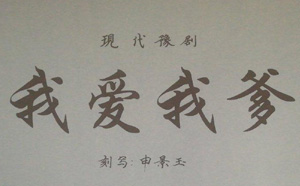 現代豫剧
我爱我爹
刻写:申景玉